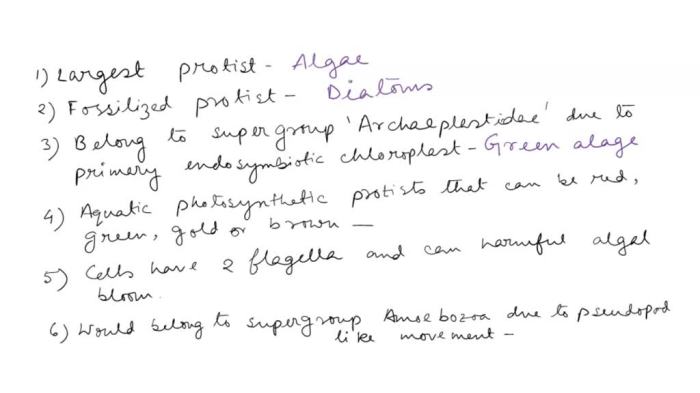 1) Largest protist - Algae
2) Fossilized protist - Diatoms
3) Belong to supergroup 'Archaeplestidae' due to
primery endosymbiotic chloroplest - Green alage
4) Aquatic photosynthetic protists that can be red,
green, gold or brown —
5) Cells have 2 flagella and can harmful algal
bloom.
6) Would belong to supergroup Amoebozoa due to pseudopod
like movement -